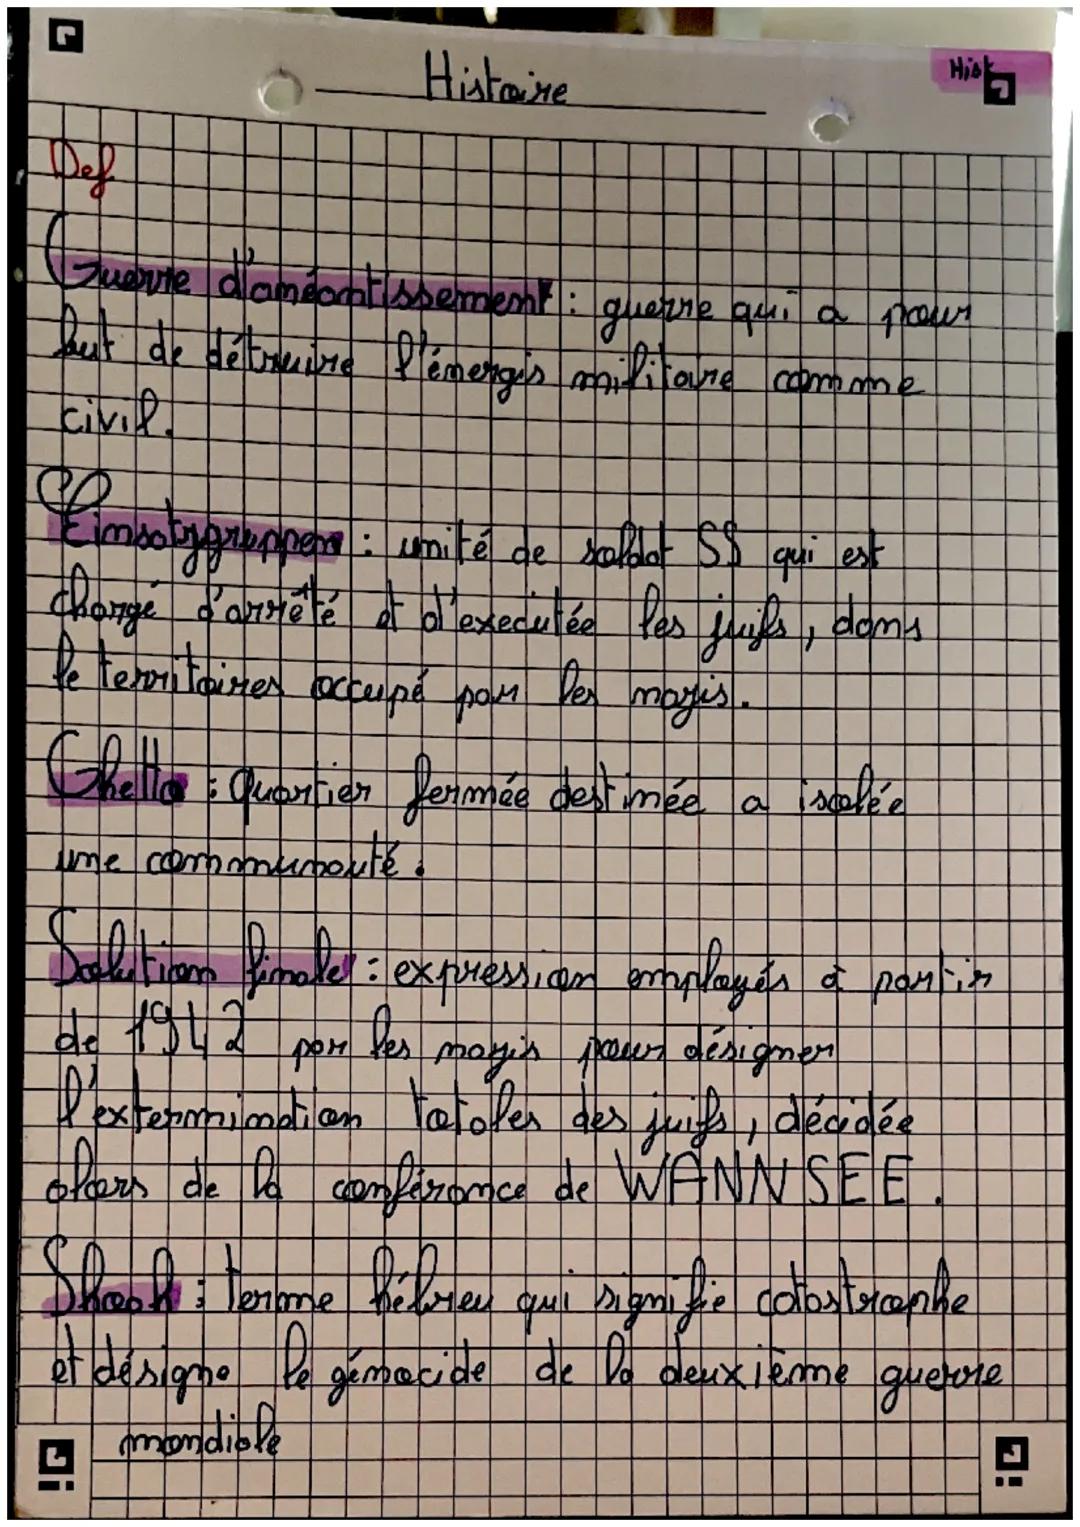 Histoire
Hist
Def
Guerre d'anéantissement : guerre qui a pour
but de détruire l'énergis militaire comme
civil.
Einsatzgruppen : unité de soldat SS qui est
chargé d'arrêté et d'executée les juifs, dans
le territoires occupé par les nazis.
Ghetto : Quartier fermée destinée a isolée
une communauté.
Solution finale : expression employés à partir
de 1942 par les nazis pour désigner
l'extermination totales des juifs, décidée
alors de la conférance de WANNSEE.
Shoah : terme hébreu qui signifie catastrophe
et désigne le génocide de la deuxième guerre
mondiale